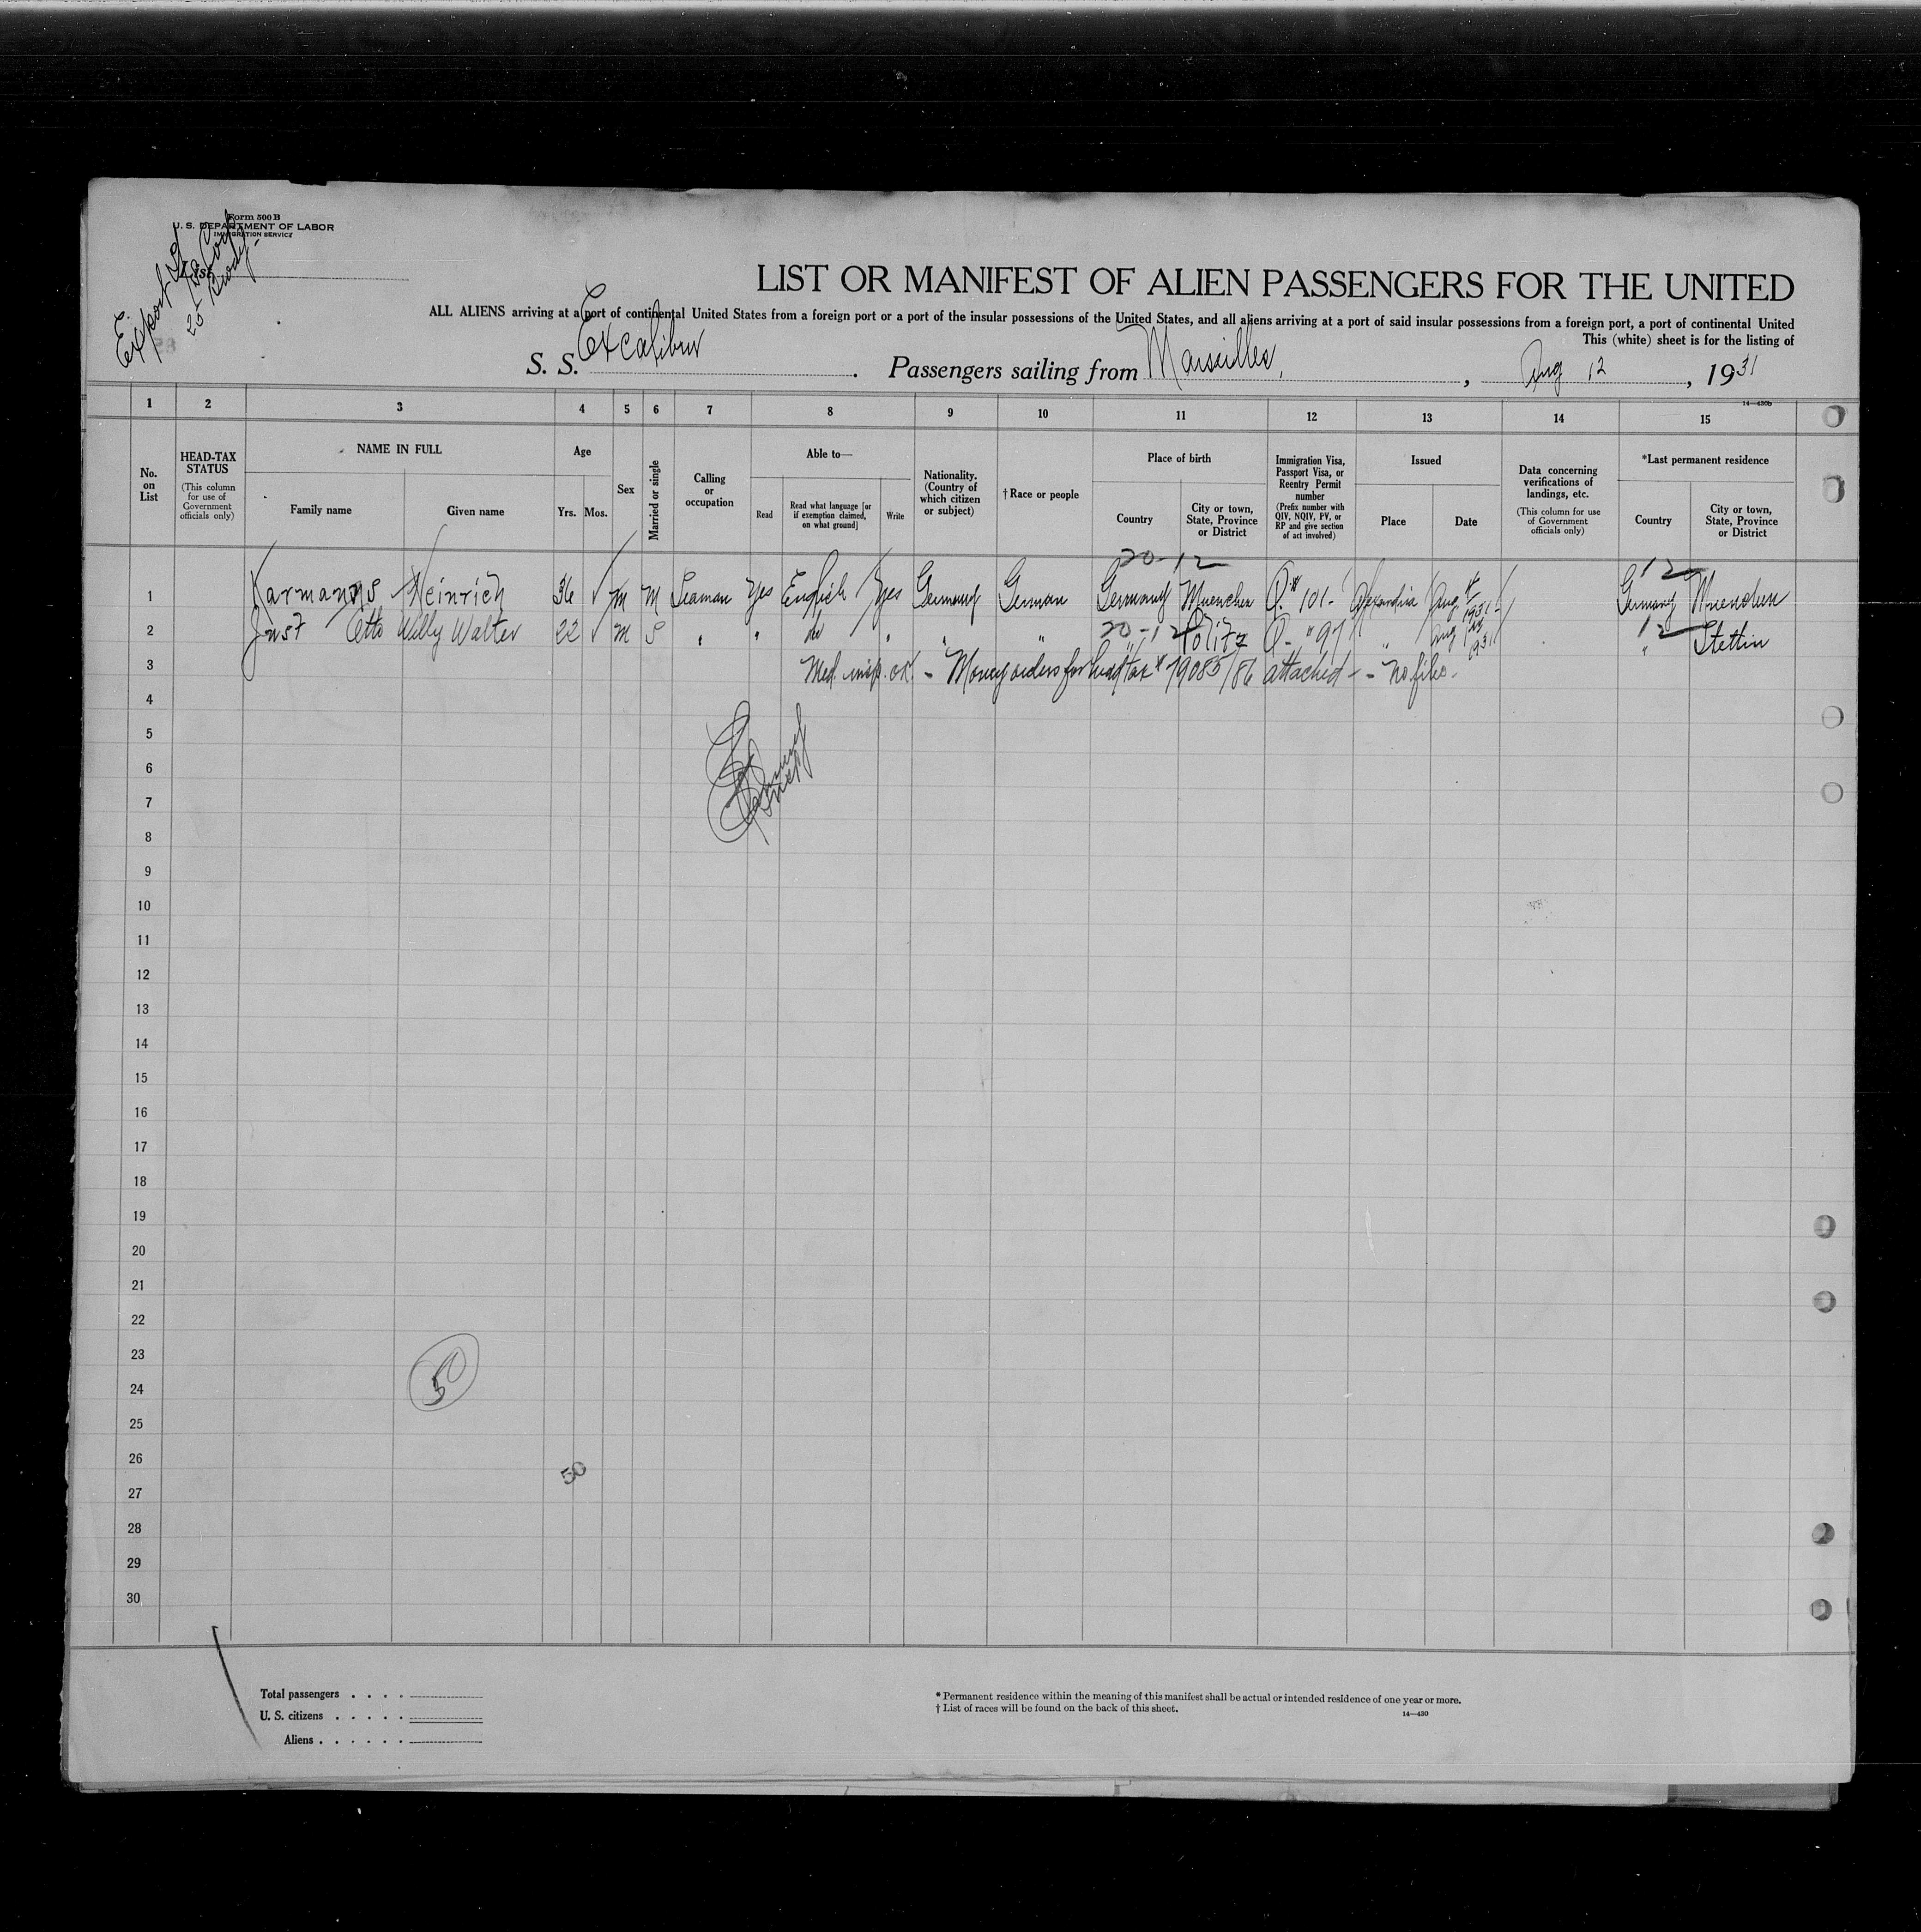 Form 500 B
U. S. DEPARTMENT OF LABOR
IMMIGRATION SERVICE
List
Export
25 Bway
LIST OR MANIFEST OF ALIEN PASSENGERS FOR THE UNITED
ALL ALIENS arriving at a port of continental United States from a foreign port or a port of the insular possessions of the United States, and all aliens arriving at a port of said insular possessions from a foreign port, a port of continental United
This (white) sheet is for the listing of
S. S. Excalibur. Passengers sailing from Marseilles, , Aug 12, 1931
14—430b
1 2 3 4 5 6 7 8 9 10 11 12 13 14 15
No. on List
HEAD-TAX STATUS
(This column for use of Government officials only)
NAME IN FULL
Family name
Given name
Age
Yrs. Mos.
Sex
Married or single
Calling or occupation
Able to—
Read
Read what language [or if exemption claimed, on what ground]
Write
Nationality. (Country of which citizen or subject)
† Race or people
Place of birth
Country
City or town, State, Province or District
Immigration Visa, Passport Visa, or Reentry Permit number
(Prefix number with QIV, NQIV, PV, or RP and give section of act involved)
Issued
Place
Date
Data concerning verifications of landings, etc.
(This column for use of Government officials only)
*Last permanent residence
Country
City or town, State, Province or District
20-12 12
1 Karmanns Heinrich 36 M M Seaman Yes English Yes Germany German Germany Muenchen Q. # 101- Alexandria Aug 4 1931 Germany Muenchen
20-12 12
2 Just Otto Willy Walter 22 M S " " do " " " Politz Q- " 97 " Aug 1931 " Stettin
3 Med. insp. ok. - Money orders for head tax # 79085/86 attached - - No files -
4
5
6
7
8
9
10
11
12
13
14
15
16
17
18
19
20
21
22
23
24
50
25
26
50
27
28
29
30
Total passengers . . . .
U. S. citizens . . . . .
Aliens . . . . . .
* Permanent residence within the meaning of this manifest shall be actual or intended residence of one year or more.
† List of races will be found on the back of this sheet.
14—430